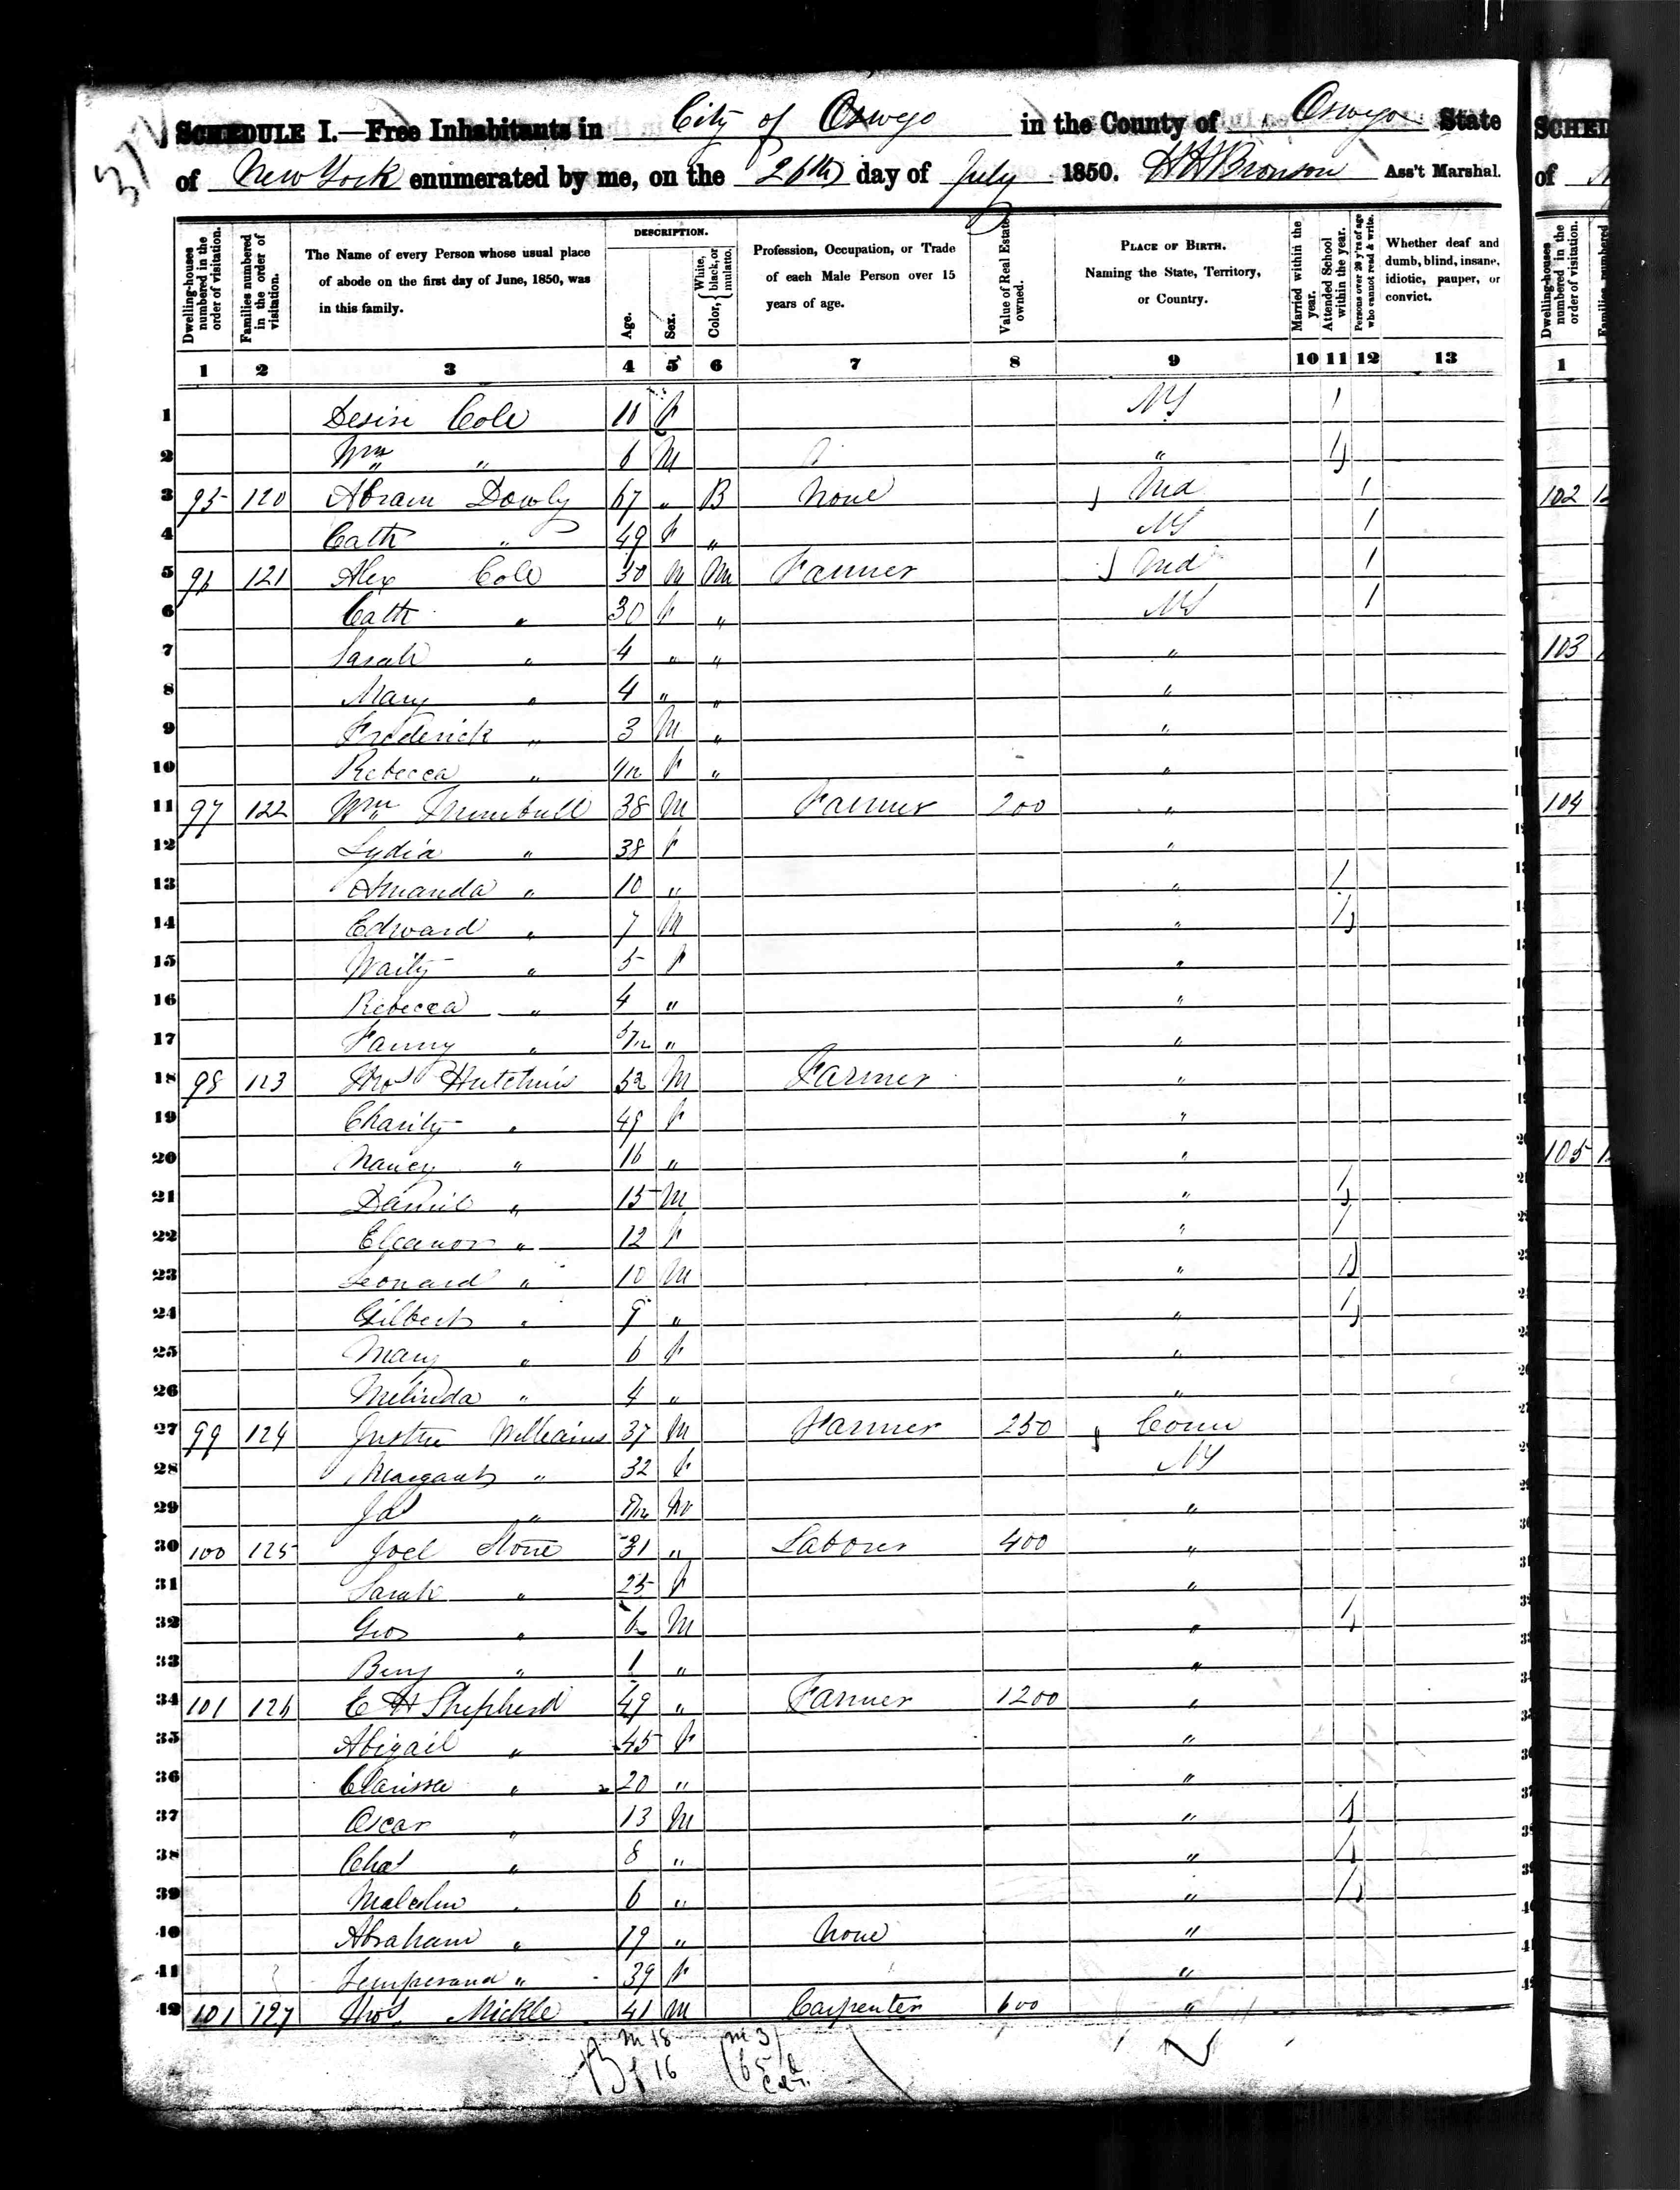 317
SCHEDULE I.—Free Inhabitants in City of Oswego in the County of Oswego State
of New York enumerated by me, on the 26th day of July 1850. H H Bronson Ass't Marshal.
Dwelling-houses numbered in the order of visitation.
Families numbered in the order of visitation.
The Name of every Person whose usual place of abode on the first day of June, 1850, was in this family.
DESCRIPTION.
Age.
Sex.
Color, { White, black, or mulatto.
Profession, Occupation, or Trade of each Male Person over 15 years of age.
Value of Real Estate owned.
PLACE OF BIRTH. Naming the State, Territory, or Country.
Married within the year.
Attended School within the year.
Persons over 20 y'rs of age who cannot read & write.
Whether deaf and dumb, blind, insane, idiotic, pauper, or convict.
1 2 3 4 5 6 7 8 9 10 11 12 13
1 Desire Cole 11 f NY 1
2 Wm " 6 M " 1
3 95 120 Abram Dowly 67 " B None Md 1
4 Cath " 49 f " NY 1
5 96 121 Alex Cole 30 M M Farmer Md 1
6 Cath " 30 f " NY 1
7 Sarah " 4 " " "
8 Mary " 4 " " "
9 Frederick " 3 M " "
10 Rebecca " 4/12 f " "
11 97 122 Wm Trumbull 38 M Farmer 200 "
12 Lydia " 38 f "
13 Amanda " 10 " " 1
14 Edward " 7 M " 1
15 Waity " 5 f "
16 Rebecca " 4 " "
17 Fanny " 5/12 " "
18 98 123 Thos Hutchins 52 M Farmer "
19 Charity " 49 f "
20 Nancy " 16 " "
21 Daniel " 15 M " 1
22 Eleanor " 12 f " 1
23 Leonard " 10 M " 1
24 Gilbert " 9 " " 1
25 Mary " 6 f "
26 Melinda " 4 " "
27 99 124 Justin Williams 37 M Farmer 250 Conn
28 Margaret " 32 f NY
29 Jas " M "
30 100 125 Joel Stone 31 " Laborer 400 "
31 Sarah " 25 f "
32 Geo " 6 M " 1
33 Benj " 1 " "
34 101 126 C H Shepherd 49 " Farmer 1200 "
35 Abigail " 45 f "
36 Clarissa " 20 " "
37 Oscar " 13 M " 1
38 Chas " 8 " " 1
39 Malcolm " 6 " " 1
40 Abraham " 19 " None "
41 Temperand " 39 f "
42 101 127 Thos Mickle 41 M Carpenter 600 "
M 18
f 16
M 3
SCHED
of
Dwelling-houses numbered in the order of visitation.
Families numbered
1
102
103
104
105